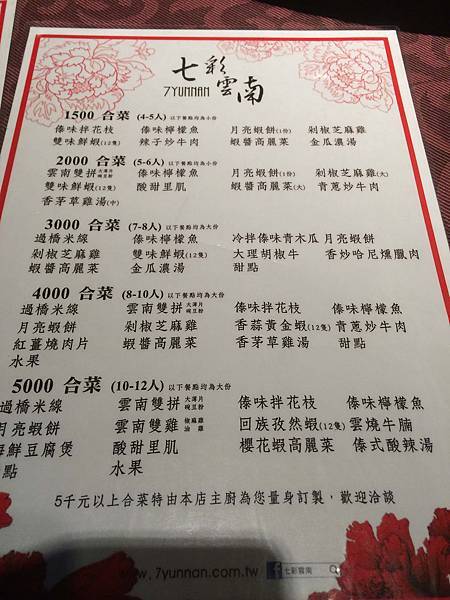 七彩雲南
7YUNNAN
1500 合菜 (4-5人) 以下餐點均為小份
傣味拌花枝 傣味檸檬魚 月亮蝦餅(1份) 剁椒芝麻雞
雙味鮮蝦(12隻) 辣子炒牛肉 蝦醬高麗菜 金瓜濃湯
2000 合菜 (5-6人) 以下餐點均為小份
雲南雙拼 大薄片 豌豆粉 傣味檸檬魚 月亮蝦餅(1份) 剁椒芝麻雞(大)
雙味鮮蝦(12隻) 酸甜里肌 蝦醬高麗菜(大) 青蔥炒牛肉
香茅草雞湯(中)
3000 合菜 (7-8人) 以下餐點均為大份
過橋米線 傣味檸檬魚 冷拌傣味青木瓜 月亮蝦餅
剁椒芝麻雞 雙味鮮蝦(12隻) 大理胡椒牛 香炒哈尼燻臘肉
蝦醬高麗菜 金瓜濃湯 甜點
4000 合菜 (8-10人) 以下餐點均為大份
過橋米線 雲南雙拼 大薄片 豌豆粉 傣味拌花枝 傣味檸檬魚
月亮蝦餅 剁椒芝麻雞 香蒜黃金蝦(12隻) 青蔥炒牛肉
紅薑燒肉片 蝦醬高麗菜 香茅草雞湯 甜點
水果
5000 合菜 (10-12人) 以下餐點均為大份
過橋米線 雲南雙拼 大薄片 豌豆粉 傣味拌花枝 傣味檸檬魚
月亮蝦餅 雲南雙雞 椒麻雞 油雞 回族孜然蝦(12隻) 雲燒牛腩
海鮮豆腐煲 酸甜里肌 櫻花蝦高麗菜 傣式酸辣湯
點 水果
5千元以上合菜特由本店主廚為您量身訂製，歡迎洽談
www.7yunnan.com.tw f 七彩雲南